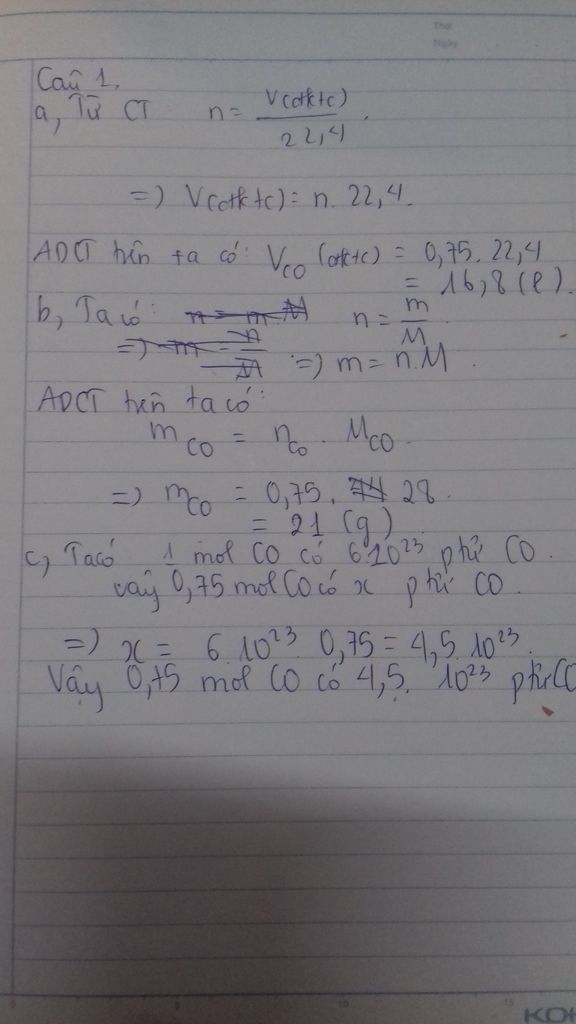 Thứ
Ngày
Câu 1.
a, Từ CT n = V(đktc) / 22,4.
=) V(đktc) = n. 22,4.
ADCT trên ta có: V_CO (đktc) = 0,75. 22,4
= 16,8 (l).
b, Ta có: n = m M n = m/M.
=) m = n/M =) m = n.M.
ADCT trên ta có:
m_CO = n_CO . M_CO.
=) m_CO = 0,75. 28.
= 21 (g)
c, Ta có 1 mol CO có 6.10²³ ptử CO.
vậy 0,75 mol CO có x ptử CO.
=) x = 6.10²³. 0,75 = 4,5.10²³.
Vậy 0,75 mol CO có 4,5. 10²³ ptử CO
5 10 15
KO